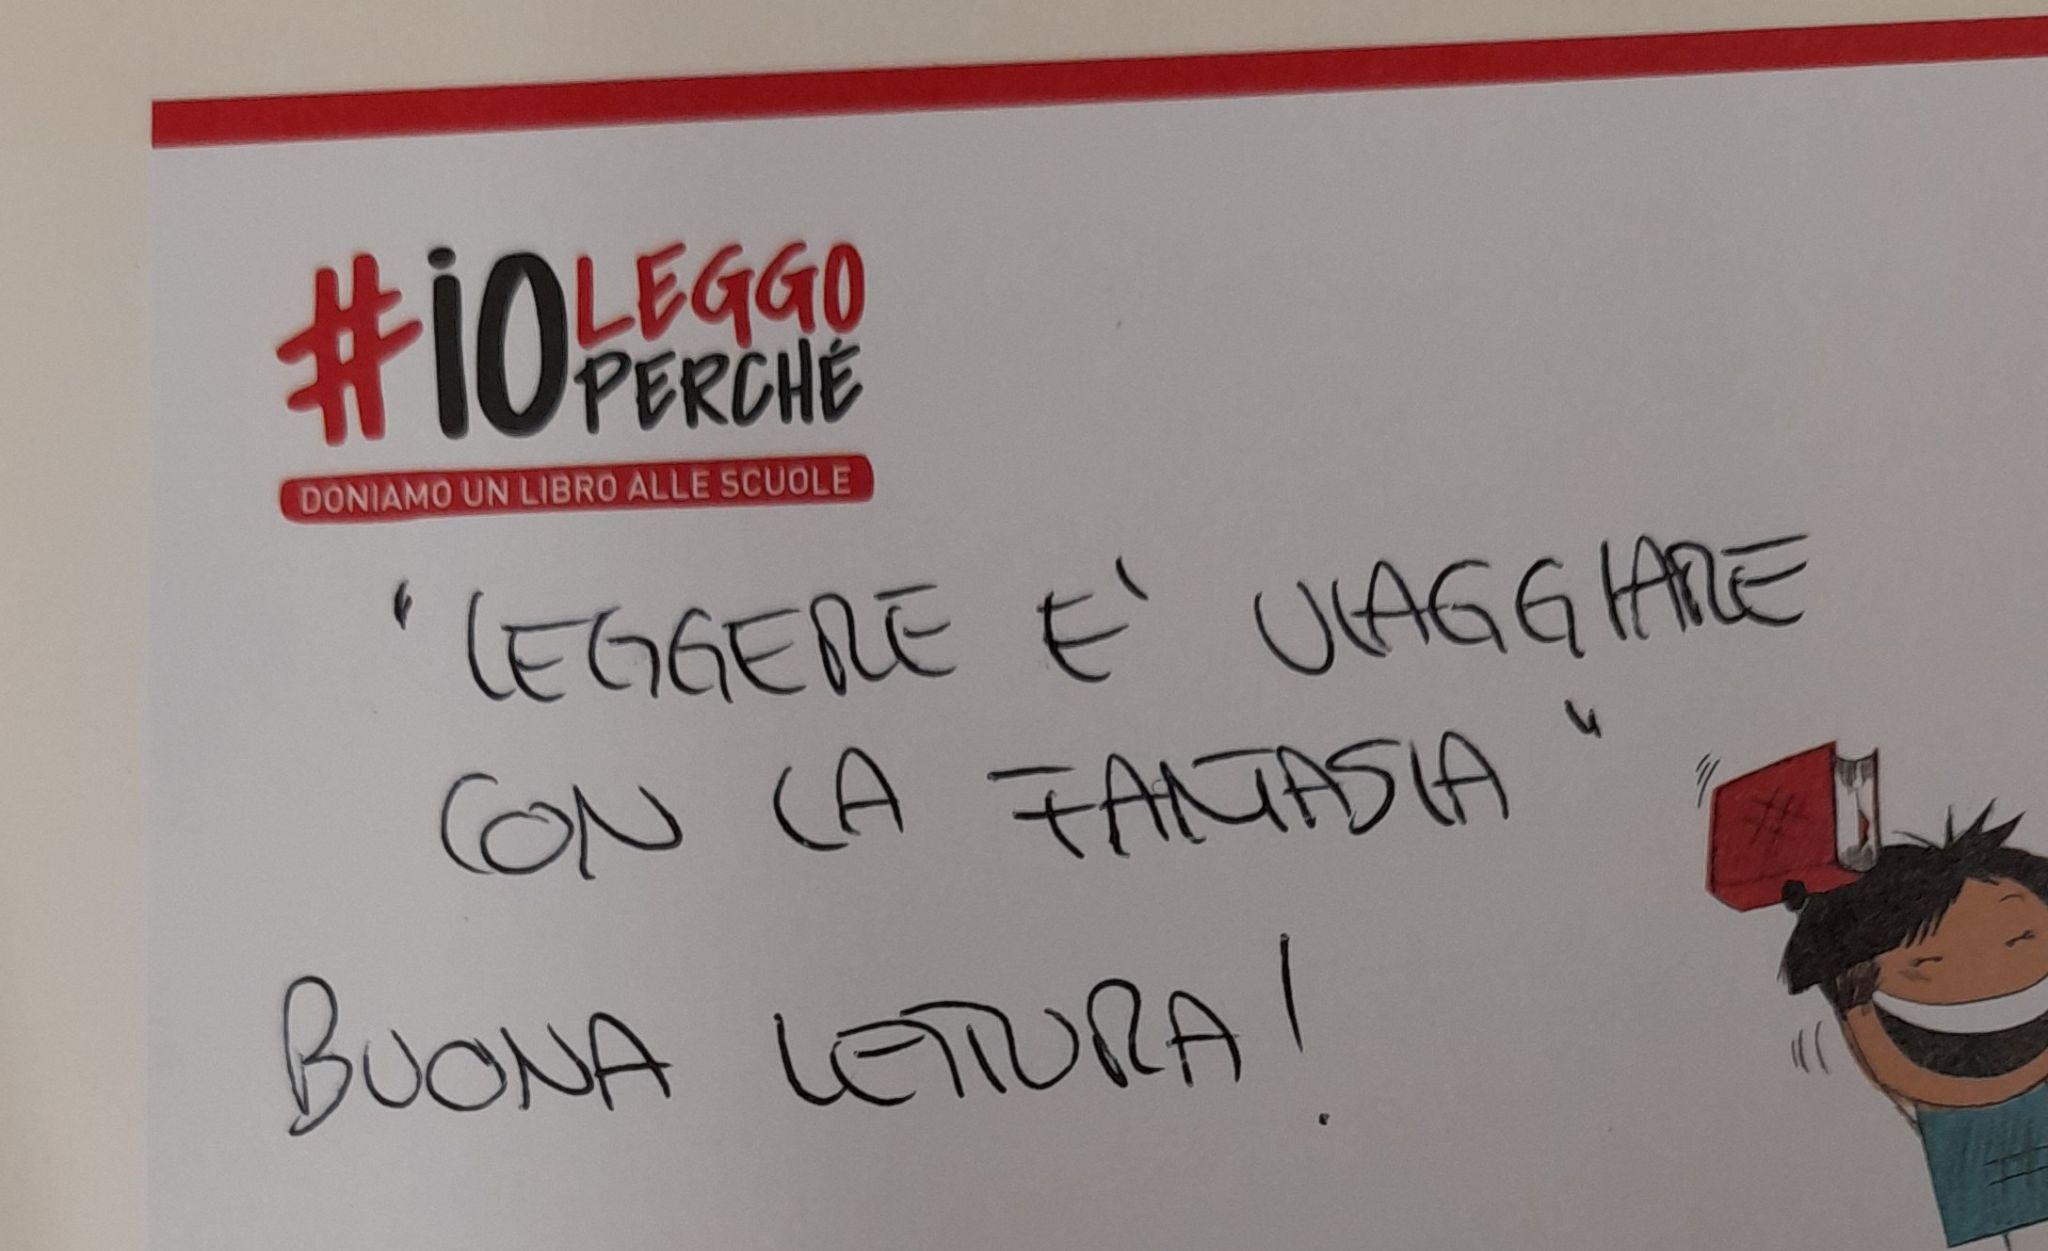 #iOLEGGO
PERCHÉ
DONIAMO UN LIBRO ALLE SCUOLE
"LEGGERE E' VIAGGIARE
CON LA FANTASIA"
BUONA LETTURA!